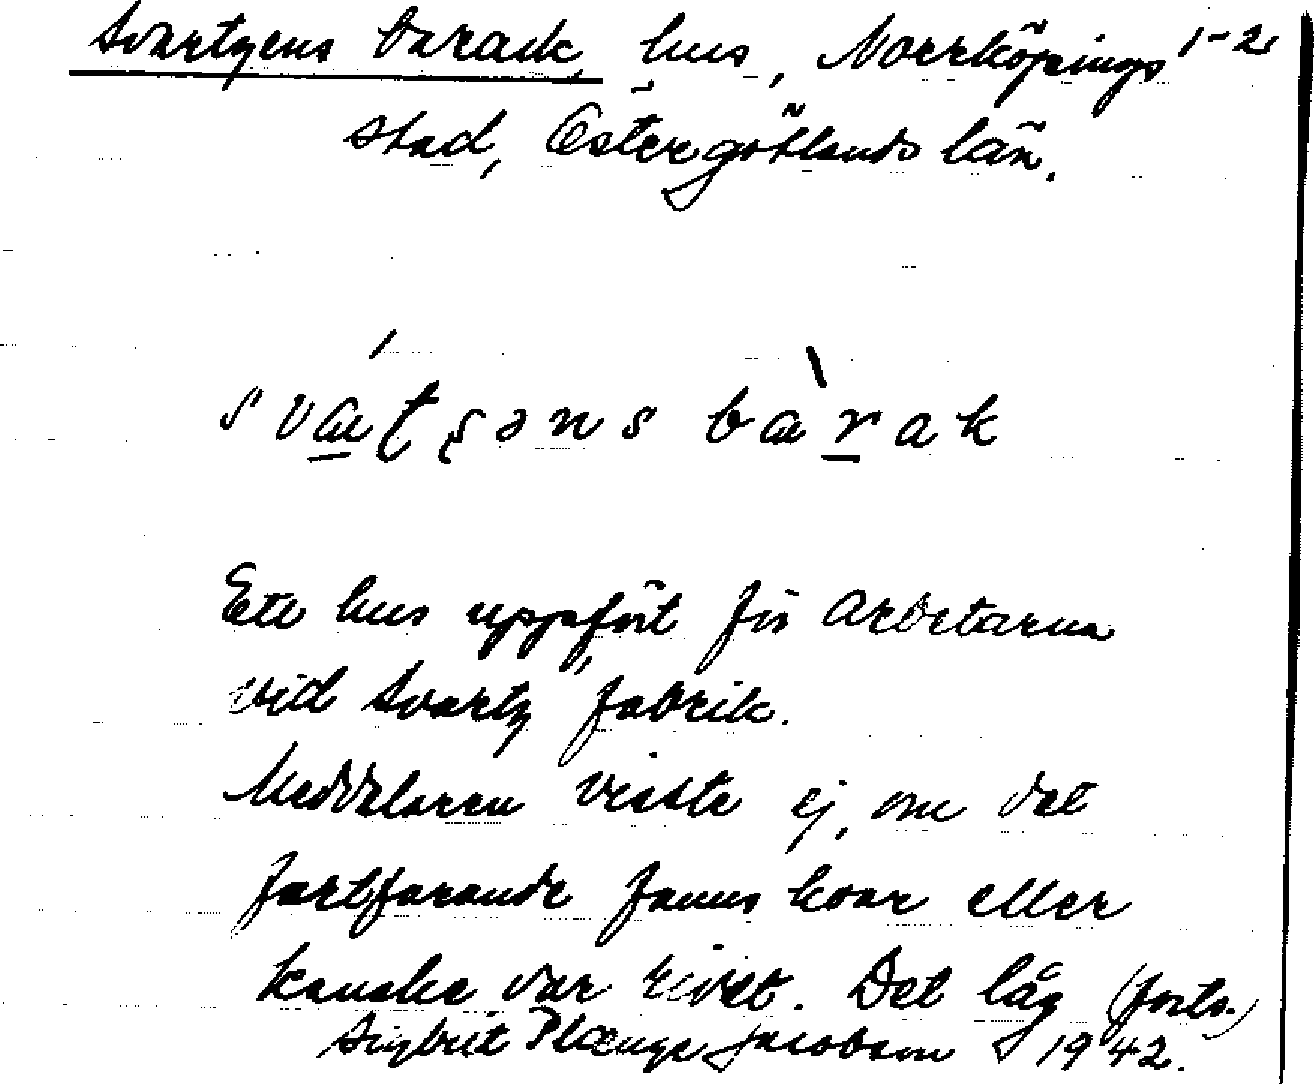 Svartgens barack, hus, Norrköpings 1-2
stad, Östergötlands län.
svɑ́ʈʂəns bɑ̀rak
Ett hus uppfört för arbetarna
vid Svartz' fabrik.
Meddelaren visste ej, om det
fortfarande fanns kvar eller
kanske var rivet. Det låg (forts.)
Sigbrit Plænge Jacobson 1942.